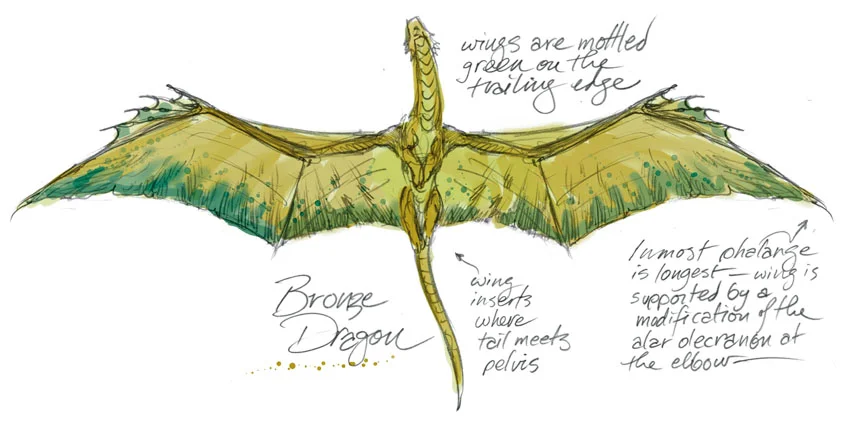 wings are mottled
green on the
trailing edge
Bronze
Dragon
wing
inserts
where
tail meets
pelvis
Inmost phalange
is longest — wing is
supported by a
modification of the
alar olecranon at
the elbow —